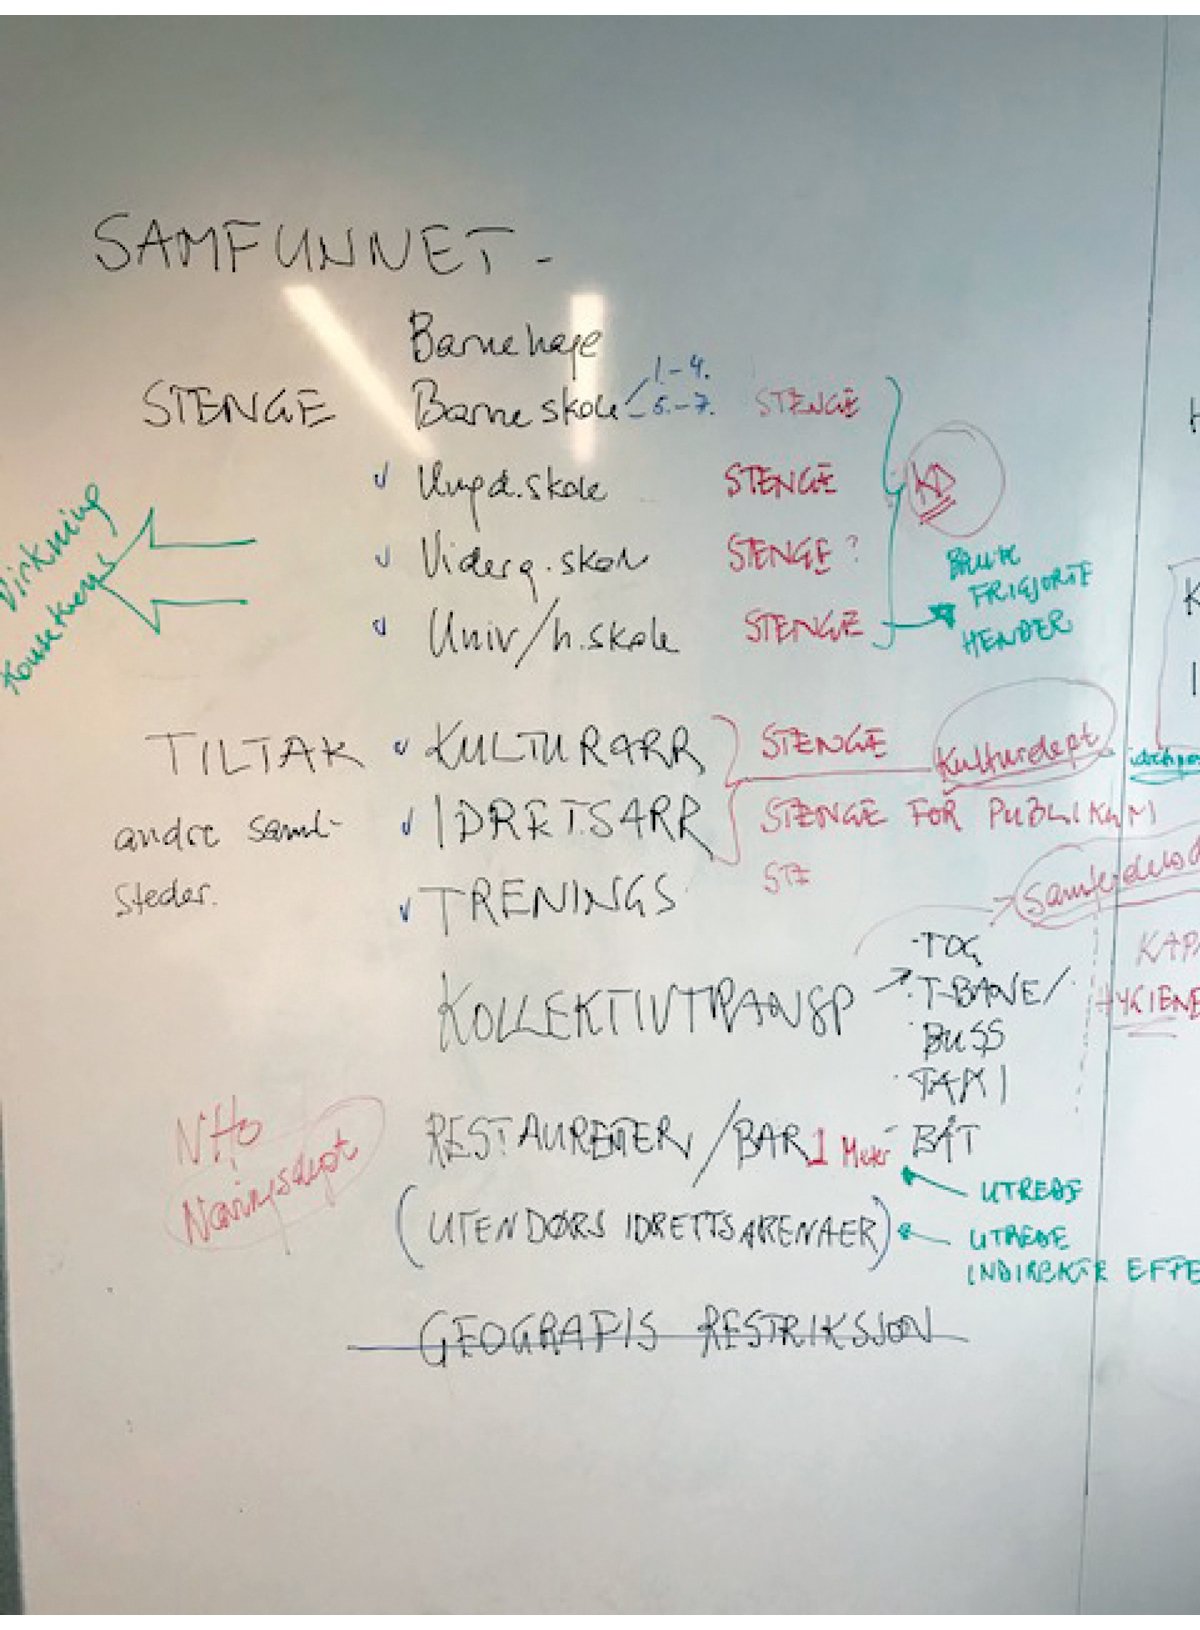 SAMFUNNET -
Barnehage
STENGE Barneskole 1.-4. 5.-7. STENGE
Ungd.skole STENGE KD
Virkning
Viderg.skole STENGE ?
FRIGJORTE
HENDER
Univ/h.skole STENGE
TILTAK KULTURARR STENGE Kulturdept
andre saml-
steder.
IDRETSARR STENGE FOR PUBLIKUM
STE
TRENINGS
KOLLEKTIVTRANSP
· TOG
· T-BANE/
· BUSS
· TAXI
- BÅT
KAPA
HYGIENE
NHO
Næringsdept
RESTAURENTER/BAR 1 Meter
UTREDE
(UTENDØRS IDRETTSARENAER)
UTREDE
INDIREKTE EFFE
GEOGRAFIS RESTRIKSJON